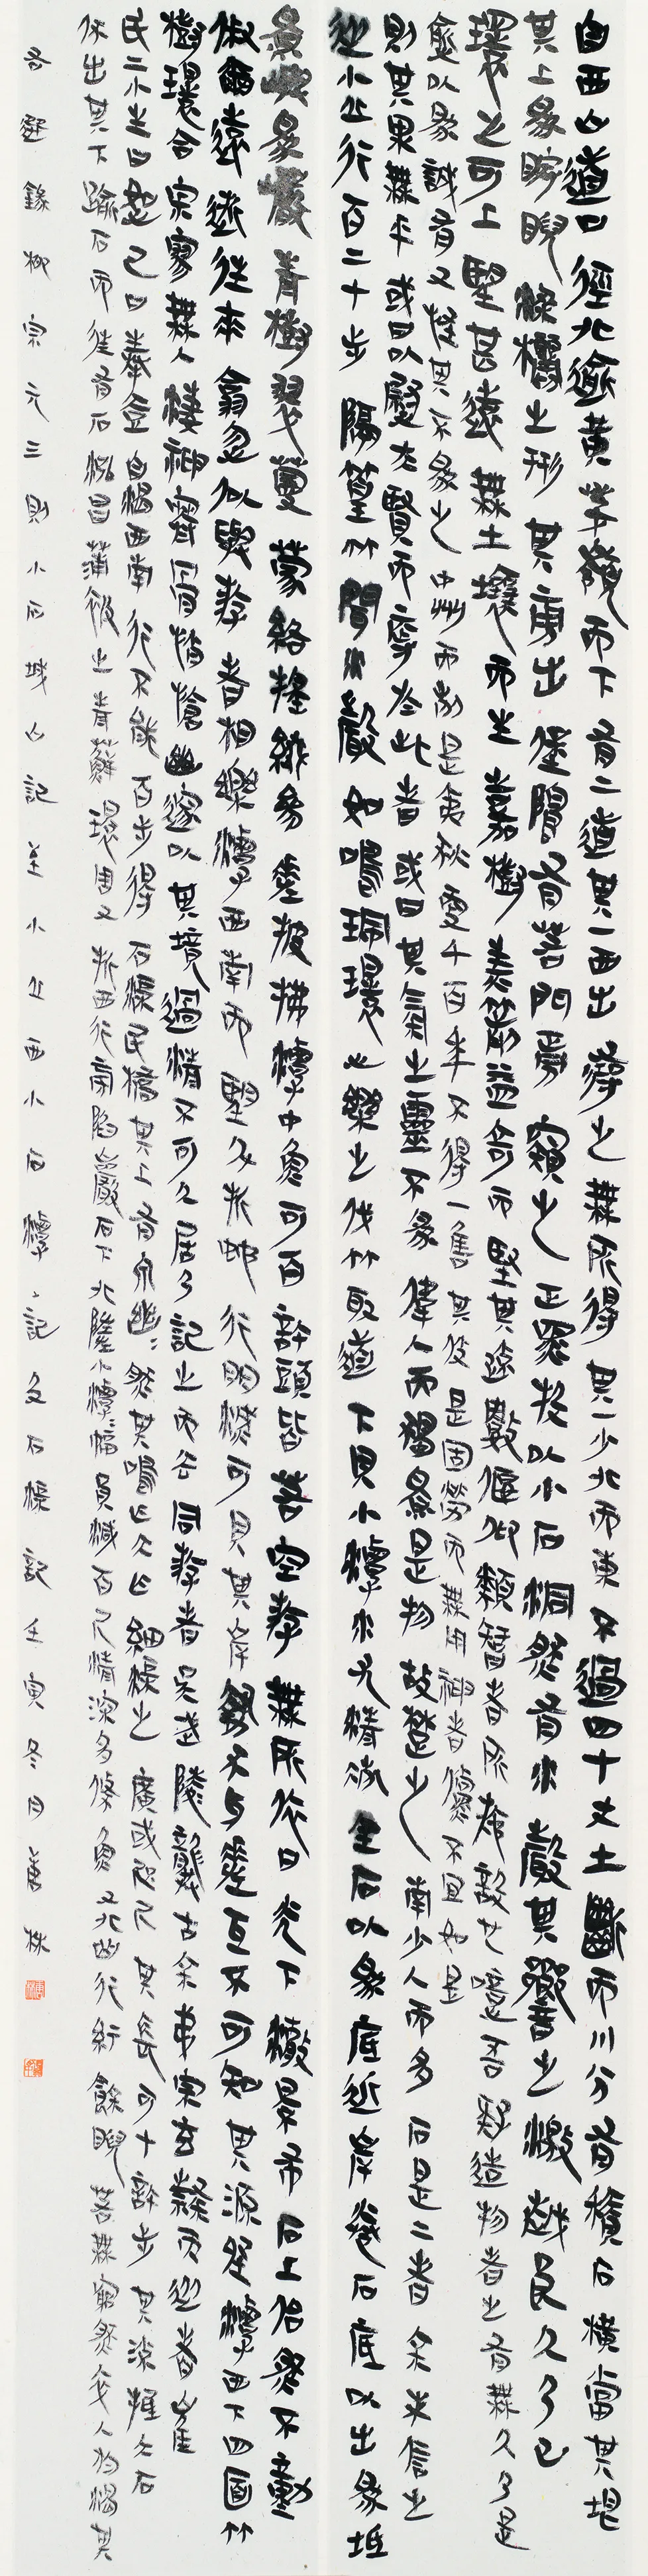 自西山道口徑北踰黃茅嶺而下有二道其一西出尋之無所得其一少北而東不過四十丈土斷而川分有積石橫當其垠
其上為睥睨梁欐之形其旁出堡塢有若門焉窺之正黑投以小石洞然有水聲其響之激越良久乃已
環之可上望甚遠無土壤而生嘉樹美箭益奇而堅其疏數偃仰類智者所施設也噫吾疑造物者之有無久乃是
愈以為誠有又怪其不為之中州而列是夷狄更千百年不得一售其伎是固勞而無用神者儻不宜如是
則其果無乎或曰以慰夫賢而辱於此者或曰其氣之靈不為偉人而獨為是物故楚之南少人而多石是二者余未信之
從小丘行百二十步隔篁竹聞水聲如鳴珮環心樂之伐竹取道下見小潭水尤清冽全石以為底近岸卷石底以出為坻
為嶼為巖青樹翠蔓蒙絡搖綴參差披拂潭中魚可百許頭皆若空游無所依日光下澈影布石上佁然不動
俶爾遠逝往來翕忽似與游者相樂潭西南而望斗折蛇行明滅可見其岸勢犬牙差互不可知其源坐潭西下四面竹
樹環合寂寥無人淒神寒骨悄愴幽邃以其境過清不可久居乃記之而去同游者吳武陵龔古余弟宗玄隸而從者崔
氏二小生曰恕己曰奉壹自渴西南行不能百步得石渠民橋其上有泉幽幽然其鳴乍大乍細渠之廣或咫尺其長可十許步其流抵大石
伏出其下踰石而往有石泓昌蒲被之青蘚環周又折西行旁陷巖石下北墮小潭潭幅員減百尺清深多鯈魚又北曲行紆餘睨若無窮然卒入於渴其
吾選錄柳宗元三則小石城山記至小丘西小石潭記及石渠記壬寅冬月唐